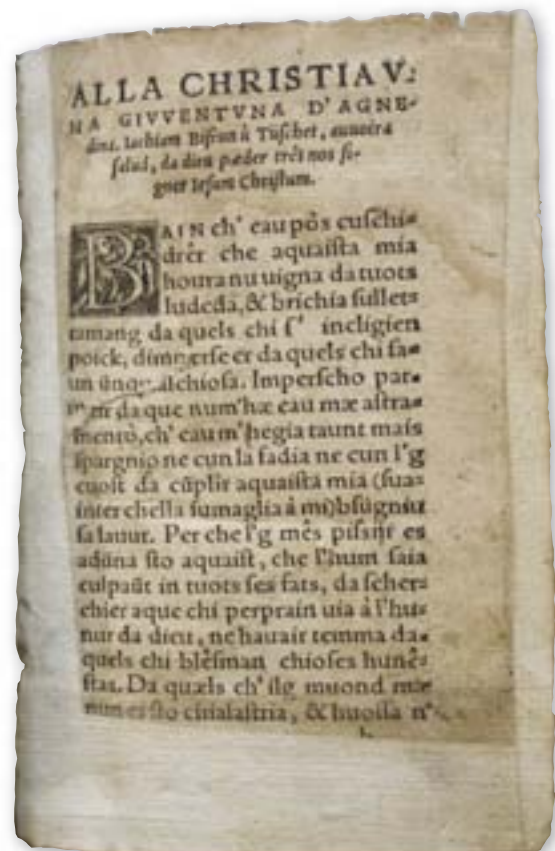 ALLA CHRISTIAV:
NA GIVVENTVNA D'AGNE-
dine. Iachiam Bifrun à Tüschet, auuoira
salüd, da dieu pæder três nos si-
gner Iesum Christum.
BAIN ch' eau pôs cuschi-
drêr che aquaista mia
houra nu uigna da tuots
ludeda, & brichia sullets
tamang da quels chi s' incligien
poick, dimperse er da quels chi sa-
un ünqualchiosa. Imperscho par-
da que num'hæ eau mæ astra-
mentò, ch' eau m'hegia taunt mais
spargnio ne cun la fadia ne cun l'g
cuost da cüplir aquaista mia (suas
inter chella sumaglia à mi) bsügnia
salauur. Per che l'g mês pisær es
adüna sto aquaist, che l'hum saia
culpaût in tuots ses fats, da scher-
chier aque chi perprain uia à l'hu-
nur da dieu, ne hauair temma da-
quels chi blêsman chioses hunês-
stas. Da quæls ch' ilg muond mæ
nun es sto & huossa n'